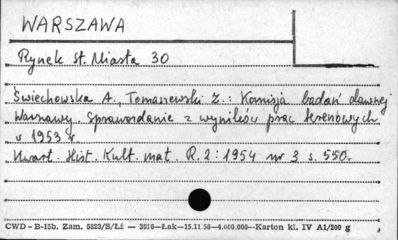 WARSZAWA
Rynek St. Miasta 30
Świechowska A., Tomaszewski Z.: Komisja badań dawnej
Warszawy. Sprawozdanie z wyników prac terenowych
w 1953 r.
Kwart. Hist. Kult. mat. R. 2: 1954 nr 3 s. 550.
CWD - B-15b. Zam. 5823/S/Łź — 3016—Łak—15.11.56—4.000.000—Karton kl. IV A1/200 g